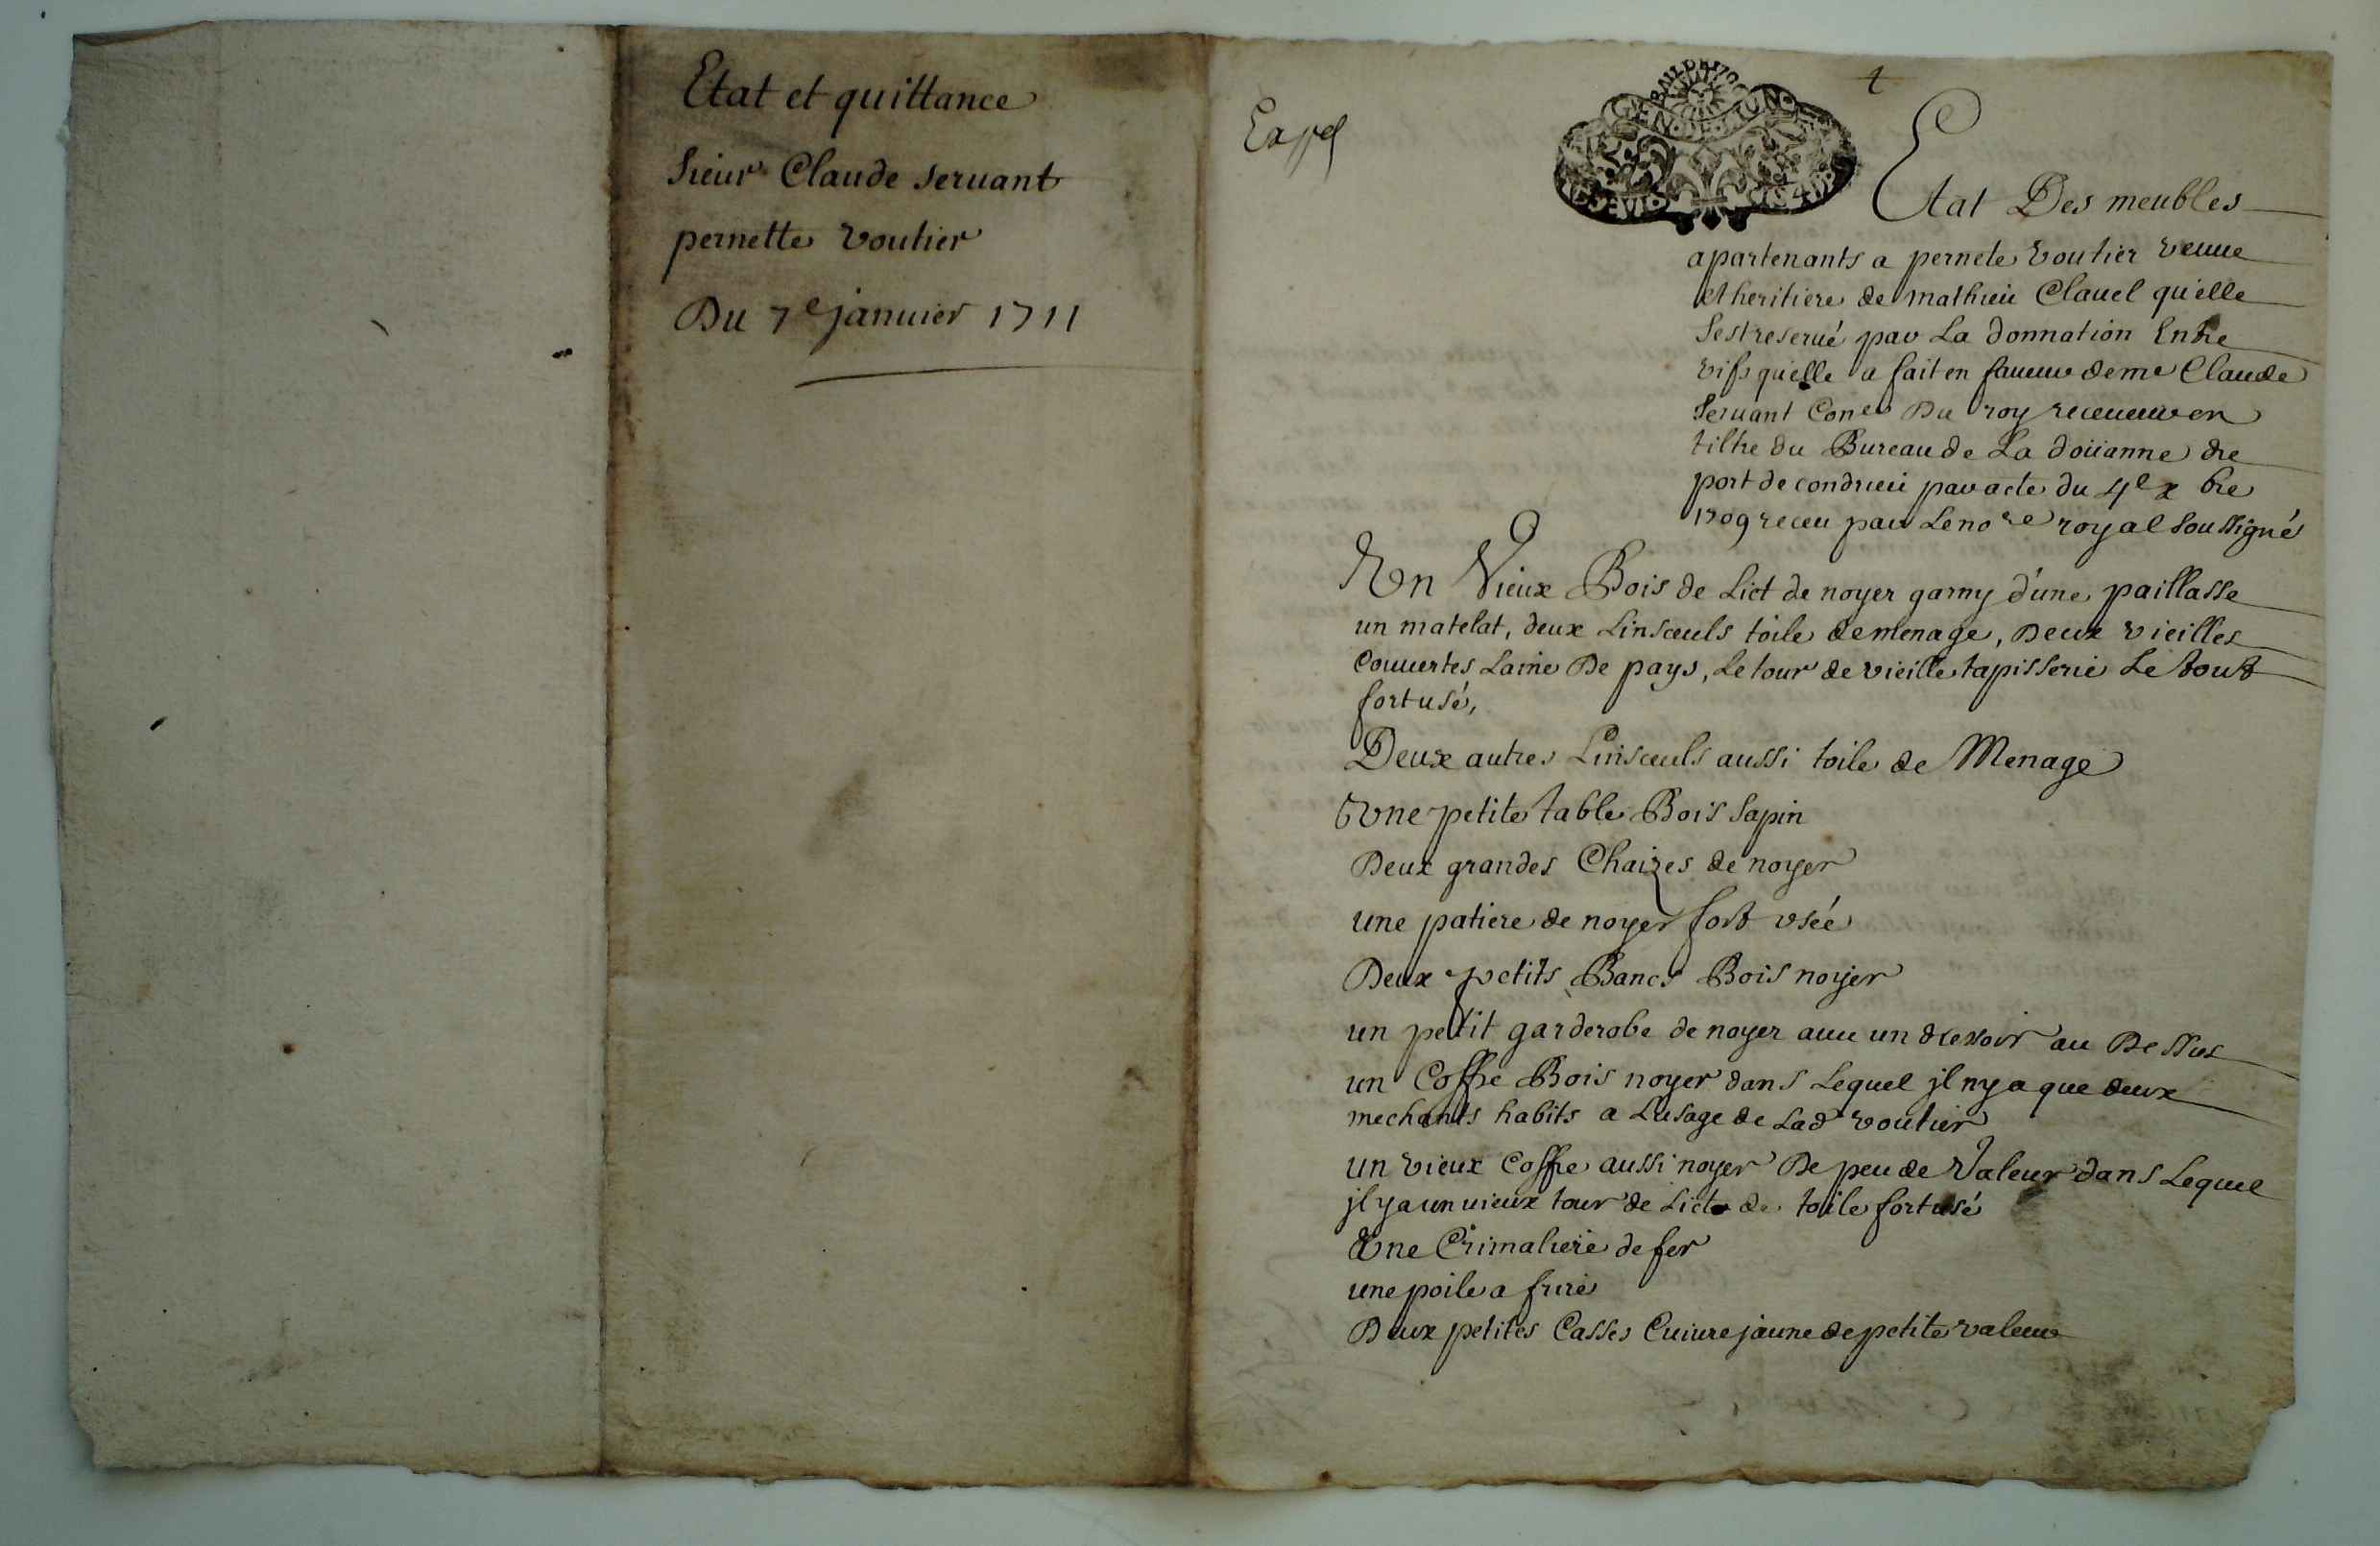 Etat et quittance
Sieur Claude servant
pernette voutier
Du 7e januier 1711
Exped
BAIL DE 170
GEN DE LION
Etat Des meubles
apartenants a pernete voutier veuue
et heritiere de mathieu Clauel qu'elle
sest reserué par La donnation Entre
vifs quelle a fait en faueur de me Claude
Seruant Coner Du roy receueur en
tiltre du Bureau de La doüanne de
port de condrieu par acte du 4e xbre
1709 receu par Le nore royal soussigné
Un Vieux Bois de Lict de noyer garny d'une paillasse
un matelat, deux Linsœuls toile de menage, Deux vieilles
Couuertes Laine De pays, Le tour de vieille tapisserie Le tout
fort usé,
Deux autres Linsœuls aussi toile de Menage
Une petite table Bois sapin
Deux grandes Chaizes de noyer
une patiere de noyer fort vsée
Deux petits Bancs Bois noyer
un petit garderobe de noyer auec un dressoir au Dessus
un Coffre Bois noyer dans Lequel jl ny a que deux
mechants habits a Lusage de Lad voutier
un vieux Coffre aussi noyer De peu de Valeur dans Lequel
jl y a un uieux tour de Lict de toile fort usé
Une Crimaliere de fer
une poile a frire
Deux petites Casses Cuiure jaune de petite valeur